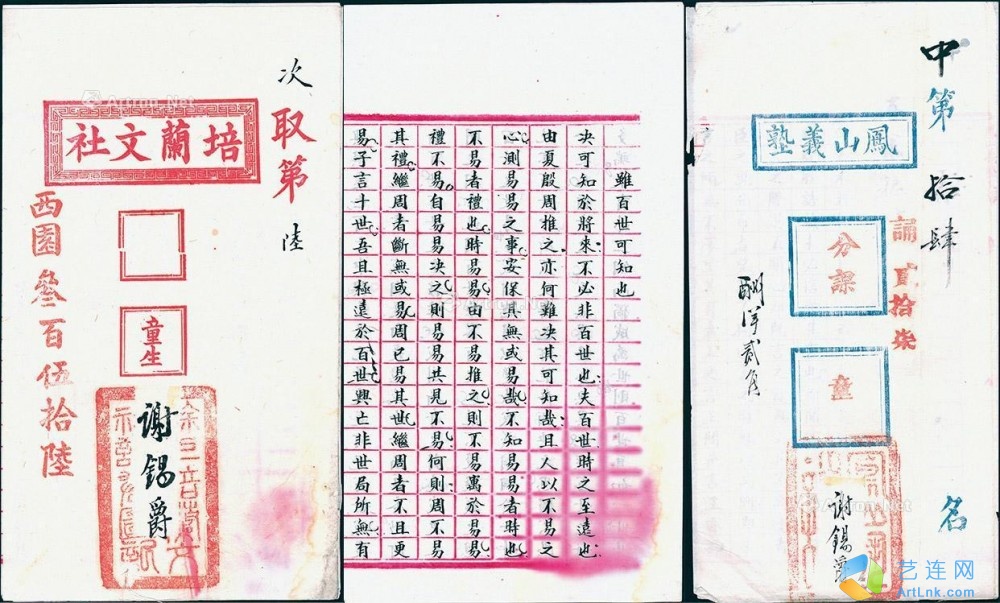 次取第陸
培蘭文社
童生
謝錫爵
西園叄百伍拾陸
雖百世可知也
决可知於將來不必非百世也夫百世時之至遠也
由夏殷周推之亦何難决其可知哉且人以不易之
心測易易之事安保其無或易哉不知易易者時也
不易者禮也時易易由不易推之則不易寓於易易
禮不易自易易决之則易易共見不易何則周不易
其禮繼周者斷無或易周已易其世繼周者不且更
易子言十世吾且極遠於百世興亡非世局所無有
中第拾肆名
誦貳拾柒
鳳山義塾
分課
童
謝錫爵
酬洋貳角
艺连网
ArtLnk.com